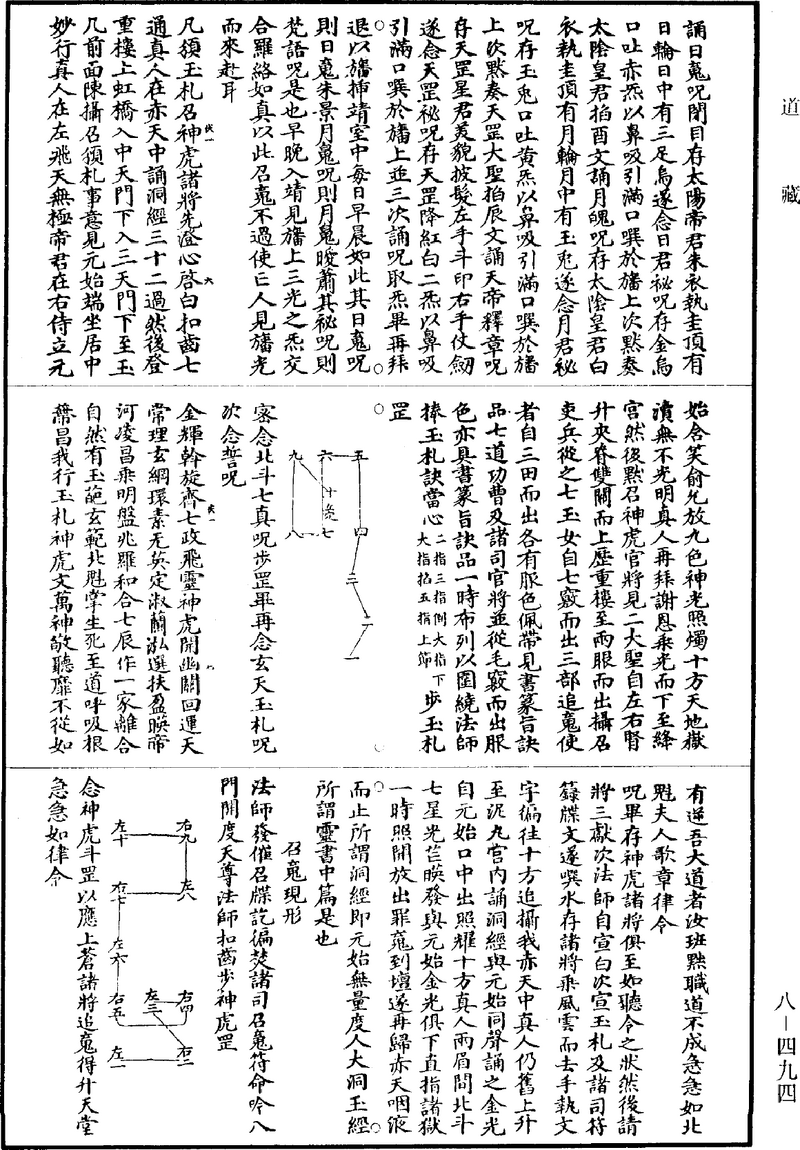 道藏
誦日䰟呪閉目存太陽帝君朱衣執圭頂有
日輪日中有三足烏遂念日君祕呪存金烏
口吐赤炁以鼻吸引滿口噀於旛上次黙奏
太陰皇君掐酉文誦月魄呪存太陰皇君白
衣執圭頂有月輪月中有玉兎遂念月君祕
呪存玉兎口吐黃炁以鼻吸引滿口噀於旛
上次黙奏天罡大聖掐辰文誦天帝釋章呪
存天罡星君美貌披髮左手斗印右手仗劒
遂念天罡祕呪存天罡降紅白二炁以鼻吸
引滿口噀於旛上並三次誦呪取炁畢再拜
退以旛揷靖室中每日早晨如此其日䰟呪
則日䰟朱景月䰟呪則月䰟曖蕭其祕呪則
梵語呪是也早晚入靖見旛上三光之炁交
合羅絡如真以此召䰟不過使亡人見旛光
而來赴耳
凡頒玉札召神虎諸將先澄心啓白扣齒七
通真人在赤天中誦洞經三十二過然後登
重樓上虹橋入中天門下入三天門下至玉
几前面陳攝召頒札事意見元始端坐居中
妙行真人在左飛天無極帝君在右侍立元
始含笑俞允放九色神光照燭十方天地嶽
瀆無不光明真人再拜謝恩乘光而下至絳
宮然後黙召神虎官將見二大聖自左右腎
升夾脊雙關而上歷重樓至兩眼而出攝召
吏兵從之七玉女自七竅而出三部追䰟使
者自三田而出各有服色佩帶見書篆旨訣
品七道功曹及諸司官將並從毛竅而出服
色亦具書篆旨訣品一時布列以圍繞法師
捧玉札訣當心二指三指倒大指下大指掐五指上節步玉札
罡
五 四 三 二 一
六 七 十後
九 八
密念北斗七真呪步罡畢再念玄天玉札呪
次念誓呪
金輝斡旋齊七政飛靈神虎開幽關回運天
常理玄綱環素无英定淑蘭泓選扶盈暎帝
河凌昌乘明盤兆羅和合七辰作一家離合
自然有玉葩玄範北魁掌生死至道呼吸根
蕭昌我行玉札神虎文萬神敬聽靡不從如
有逆吾大道者汝班黜職道不成急急如北
魁夫人歌章律令
呪畢存神虎諸將俱至如聽令之狀然後請
將三獻次法師自宣白次宣玉札及諸司符
籙牒文遂噀水存諸將乘風雲而去手執文
字徧往十方追攝我赤天中真人仍舊上升
至泥丸宮內誦洞經與元始同聲誦之金光
自元始口中出照耀十方真人兩眉間北斗
七星光芒暎發與元始金光俱下直指諸獄
一時照開放出罪䰟到壇遂再歸赤天咽液
而止所謂洞經即元始無量度人大洞玉經
所謂靈書中篇是也
召䰟現形
法師發催召牒訖徧焚諸司召䰟符命吟八
門開度天尊法師扣齒步神虎罡
右九 左八
左十 右七 左六 右五 左一
右四 左三 右二
念神虎斗罡以應上蒼諸將追䰟得升天堂
急急如律令
八－四九四